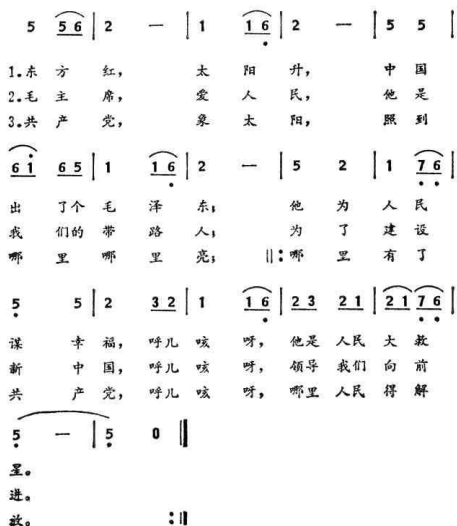 5 56 | 2 — | 1 16 | 2 — | 5 5 |
1.东 方 红， 太 阳 升， 中 国
2.毛 主 席， 爱 人 民， 他 是
3.共 产 党， 象 太 阳， 照 到
61 65 | 1 16 | 2 — | 5 2 | 1 76 |
出 了个 毛 泽 东； 他 为 人 民
我 们的 带 路 人； 为 了 建 设
哪 里 哪 里 亮； ‖: 哪 里 有 了
5 5 | 2 32 | 1 16 | 23 21 | 21 76 |
谋 幸 福， 呼儿 咳 呀， 他是 人民 大 救
新 中 国， 呼儿 咳 呀， 领导 我们 向 前
共 产 党， 呼儿 咳 呀， 哪里 人民 得 解
5 — | 5 0 ‖
星。
进。
放。 :‖